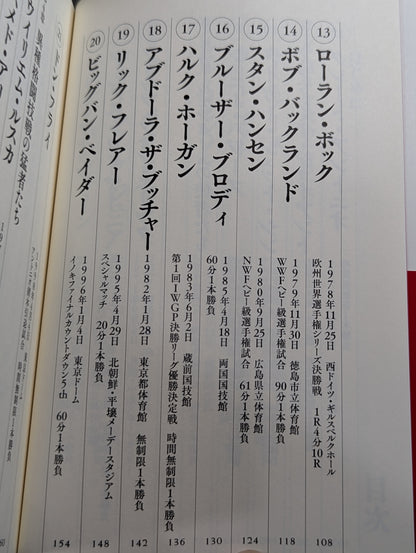 ⑬ ローラン・ボック
1978年11月25日 西ドイツ・ギルスベルクホール
欧州世界選手権シリーズ決勝戦 1R4分10R
108
⑭ ボブ・バックランド
1979年11月30日 徳島市立体育館
WWFヘビー級選手権試合 90分1本勝負
118
⑮ スタン・ハンセン
1980年9月25日 広島県立体育館
NWFヘビー級選手権試合 61分1本勝負
124
⑯ ブルーザー・ブロディ
1985年4月18日 両国国技館
60分1本勝負
130
⑰ ハルク・ホーガン
1983年6月2日 蔵前国技館
第1回IWGP決勝リーグ優勝決定戦 時間無制限1本勝負
136
⑱ アブドーラ・ザ・ブッチャー
1982年1月28日 東京都体育館 無制限1本勝負
142
⑲ リック・フレアー
1995年4月29日 北朝鮮・平壌メーデースタジアム
スペシャルマッチ 20分1本勝負
148
⑳ ビッグバン・ベイダー
1996年1月4日 東京ドーム
イノキファイナルカウントダウン5th 60分1本勝負
154
ドン・フライ
時間無制限1本勝負
異種格闘技戦の猛者たち
ウイリエム・ルスカ
目次